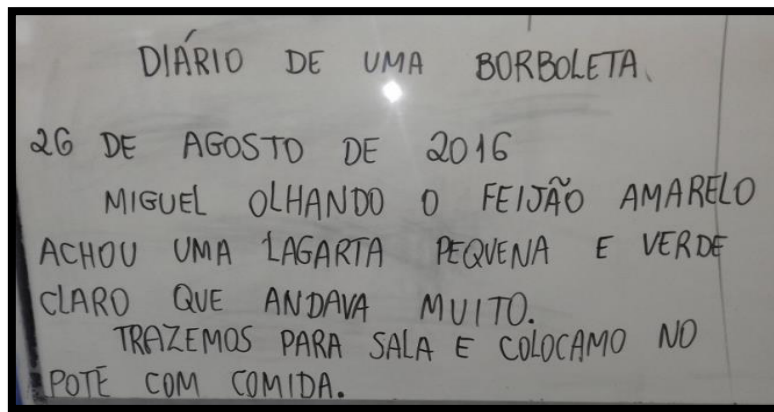 DIÁRIO DE UMA BORBOLETA
26 DE AGOSTO DE 2016
MIGUEL OLHANDO O FEIJÃO AMARELO
ACHOU UMA LAGARTA PEQUENA E VERDE
CLARO QUE ANDAVA MUITO.
TRAZEMOS PARA SALA E COLOCAMO NO
POTE COM COMIDA.